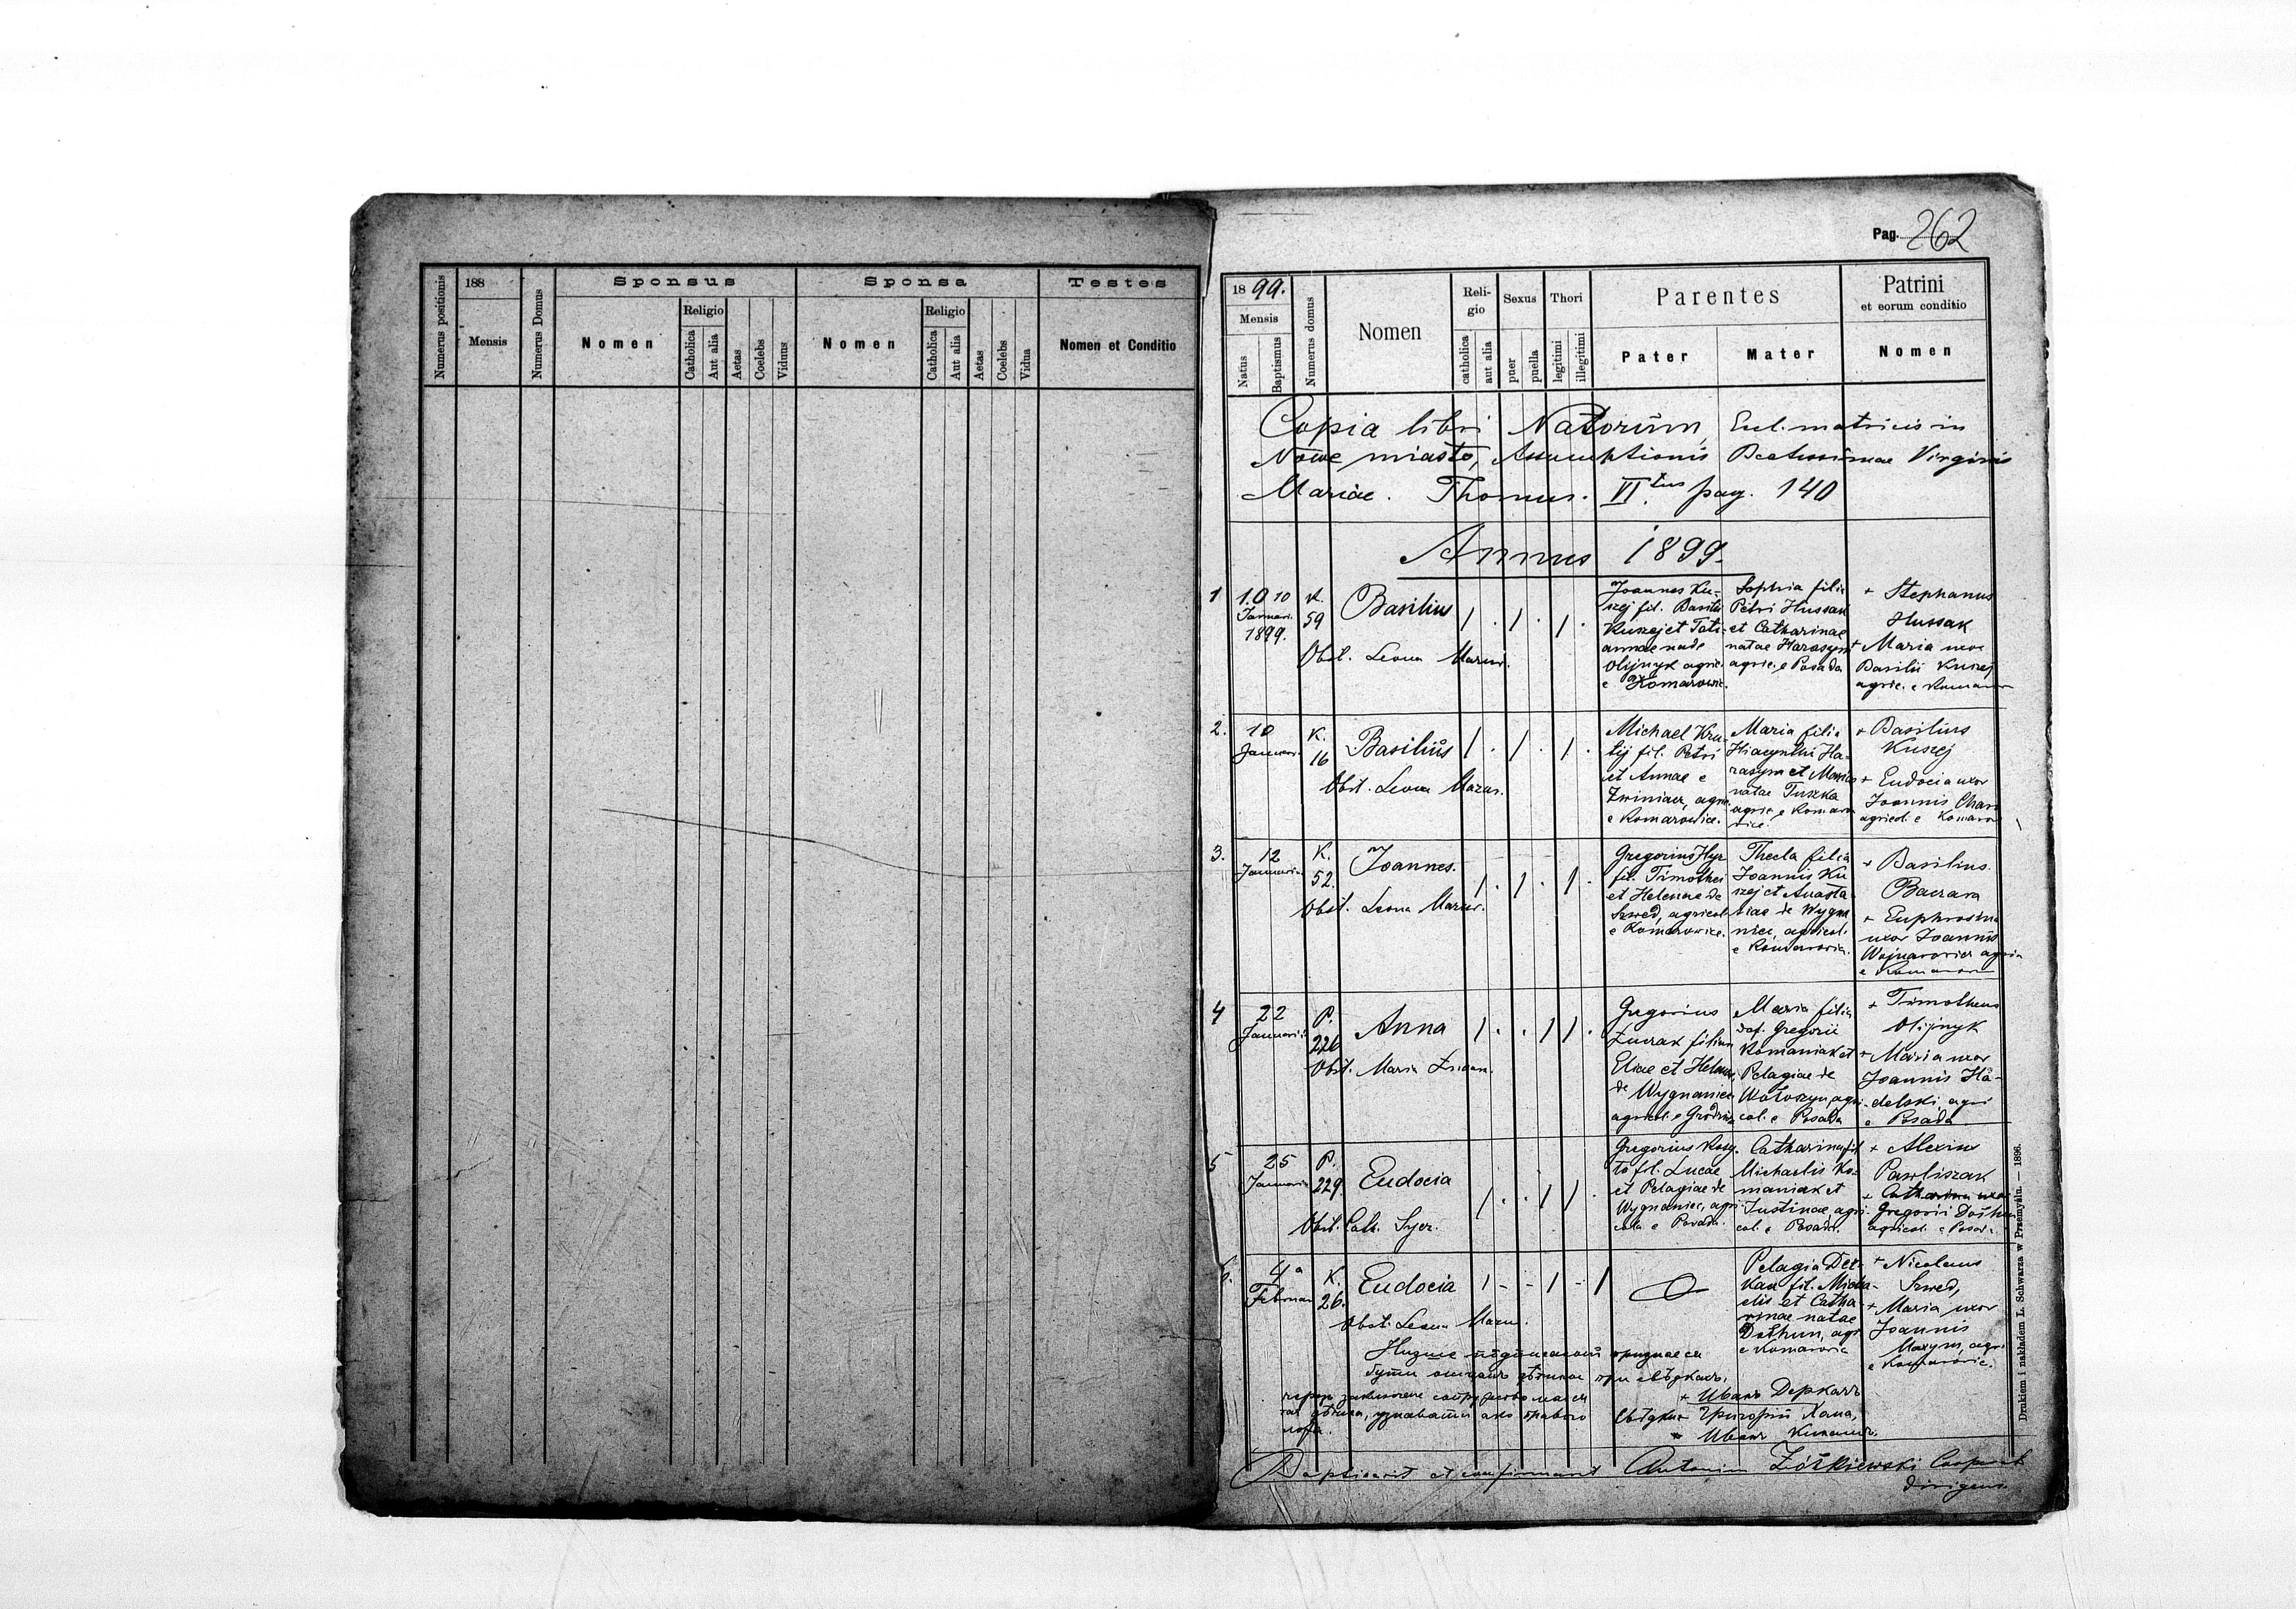 Numerus positionis
188
Mensis
Numerus Domus
Sponsus
Nomen
Religio
Catholica
Aut alia
Aetas
Coelebs
Viduus
Sponsa
Nomen
Religio
Catholica
Aut alia
Aetas
Coelebs
Vidua
Testes
Nomen et Conditio
Pag. 262
1899.
Mensis
Natus
Baptismus
Numerus domus
Nomen
Reli-
gio
catholica
aut alia
Sexus
puer
puella
Thori
legitimi
illegitimi
Parentes
Pater
Mater
Patrini
et eorum conditio
Nomen
Copia libri Natorum, Eccl. matricis in
Nowe miasto, Assumptionis Beatissimae Virginis
Mariae. Thomus. VI.tus pag. 140
Annus 1899.
1
10 10
Januari.
1899.
K.
59
Basilius
Obst. Leona Mazur.
Joannes Ku-
szej fil. Basilii
Kuszej et Tati-
annae nade
Olijnyk agric.
e Komarowic.
Sophia filia
Petri Hussak
et Catharinae
natae Harasym
agric. e Posada
+ Stephanus
Hussak
+ Maria uxor
Basilii Kuszej
agric. e Komarow
2.
10
Januari.
K.
16
Basilius
Obst. Leona Mazur.
Michael Kru-
tij fil. Petri
et Annae e
agric.
e Komarowice.
Maria filia
Hiacynthi Ha-
rasym et Mariae
natae Tuszka
agric. e Komaro
wice.
+ Basilius
Kuszej
+ Eudocia uxor
Joannis Chan
agricol. e Komarow
3.
12
Januari.
K.
52.
Joannes.
Obst. Leona Mazur.
Gregorius Hyr
fil. Timothei
et Helenae de
Szwed, agricol.
e Komarowice.
Thecla filia
Joannis Ku
szej et Anasta-
siae de Wygna
niec, agricol.
e Komarowic.
+ Basilius
Baczara
+ Euphrosina
uxor Joannis
Wojnarowicz agric
e Komarow
4
22
Januarii
P.
226
Anna
Obst. Maria
Gregorius
Żurak filius
Eliae et Helenae
de Wygnaniec
agricol. e
Maria filia
def. Gregorii
Romaniak et
Pelagiae de
Wołoszyn, agri-
col. e Posada
+ Timotheus
Olijnyk
+ Maria uxor
Joannis Ha-
delski agri
e Posada.
5
25
Januari
P.
229.
Eudocia
Obst. Cath.
Gregorius Kosy-
to fil. Lucae
et Pelagiae de
Wygnaniec, agri
cola e Posada.
Catharina fil.
Michaelis Ro-
maniak et
Justinae, agri-
col. e Posada.
+ Alexius
Pawliszak
+ Catharina uxor
Gregorii Dothun
agricol. e Posada.
6.
4a
Februar
K.
26.
Eudocia
Obst. Leona Mazur.
Pelagia Der-
kacz fil. Micha-
elis et Catha-
rinae natae
Dothun, agr.
e Komarowic
+ Nicolaus
Szwed,
+ Maria, uxor
Joannis
Maxym, agri
e Komarowic.
Низше підписаный признаеся
бути отцемъ дѣтини при свѣдкахъ,
+ Иванъ Деркачъ
Свѣдки + Григорій Хана,
+ Иванъ
Baptisavit et confirmavit Antonius Żółkiewski Cooperat
dirigens.
Drukiem i nakładem L. Schwarza w Przemyślu. — 1896.